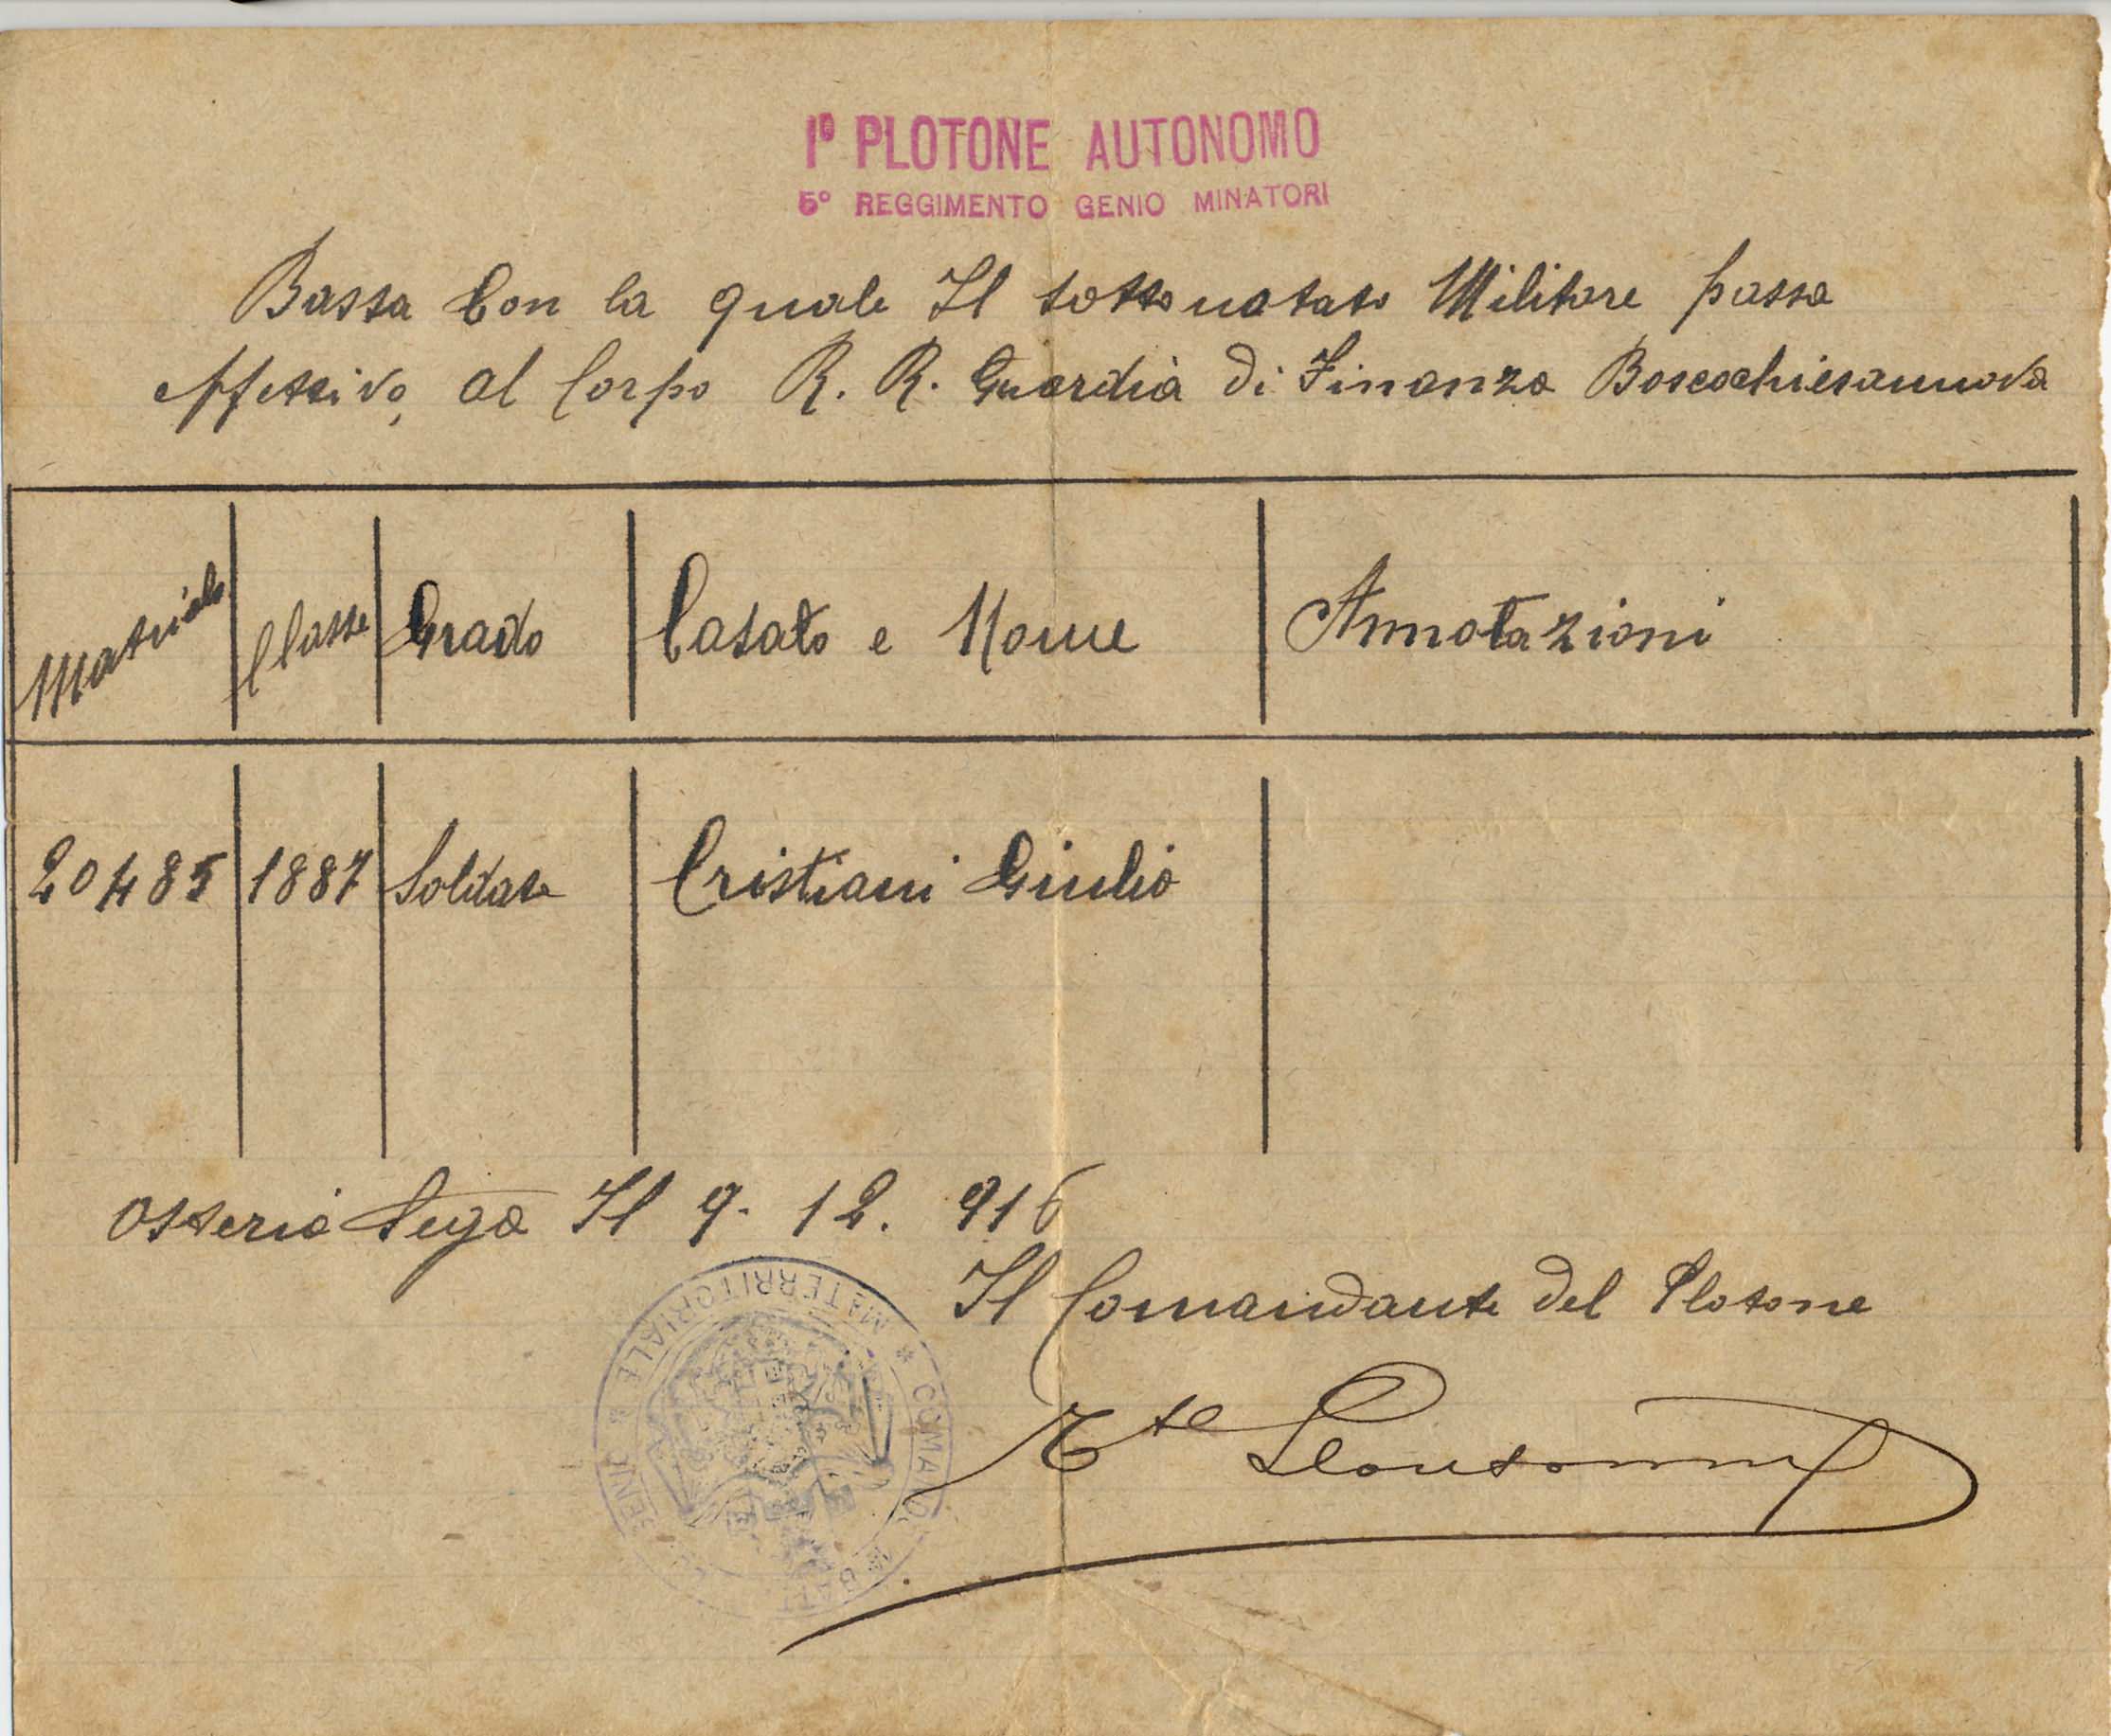 1º PLOTONE AUTONOMO
5º REGGIMENTO GENIO MINATORI
Bassa Con la quale Il sottonotato Militare passa
effettivo, al Corpo R. R. Guardia di Finanza Boscochiesannova
Matricola Classe Grado Casato e Nome Annotazioni
20485 1887 Soldato Cristiani Giulio
Osteria Sega Il 9. 12. 916
Il Comandante del Plotone
Tte
MATERRITORIALE * COMANDO